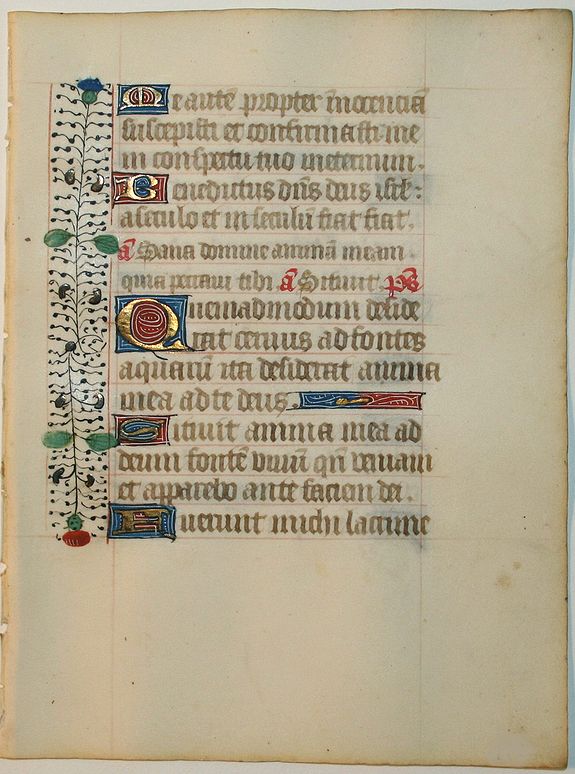 Me autē propter inocenciā
suscepisti et confirmasti me
in conspectu tuo in eternum.
Benedictus dn̄s deus isrl̄:
a seculo et in seculū fiat fiat.
a᷑ Sana domine animā meam
quia peccavi tibi. a᷑ Sitivit. p̄s
Quemadmodum deside
rat cervus ad fontes
aquarū ita desiderat anima
mea ad te deus.
Sitivit anima mea ad
deum fontē vivū qn̄ veniam
et apparebo ante faciem dei.
Fuerunt michi lacrime